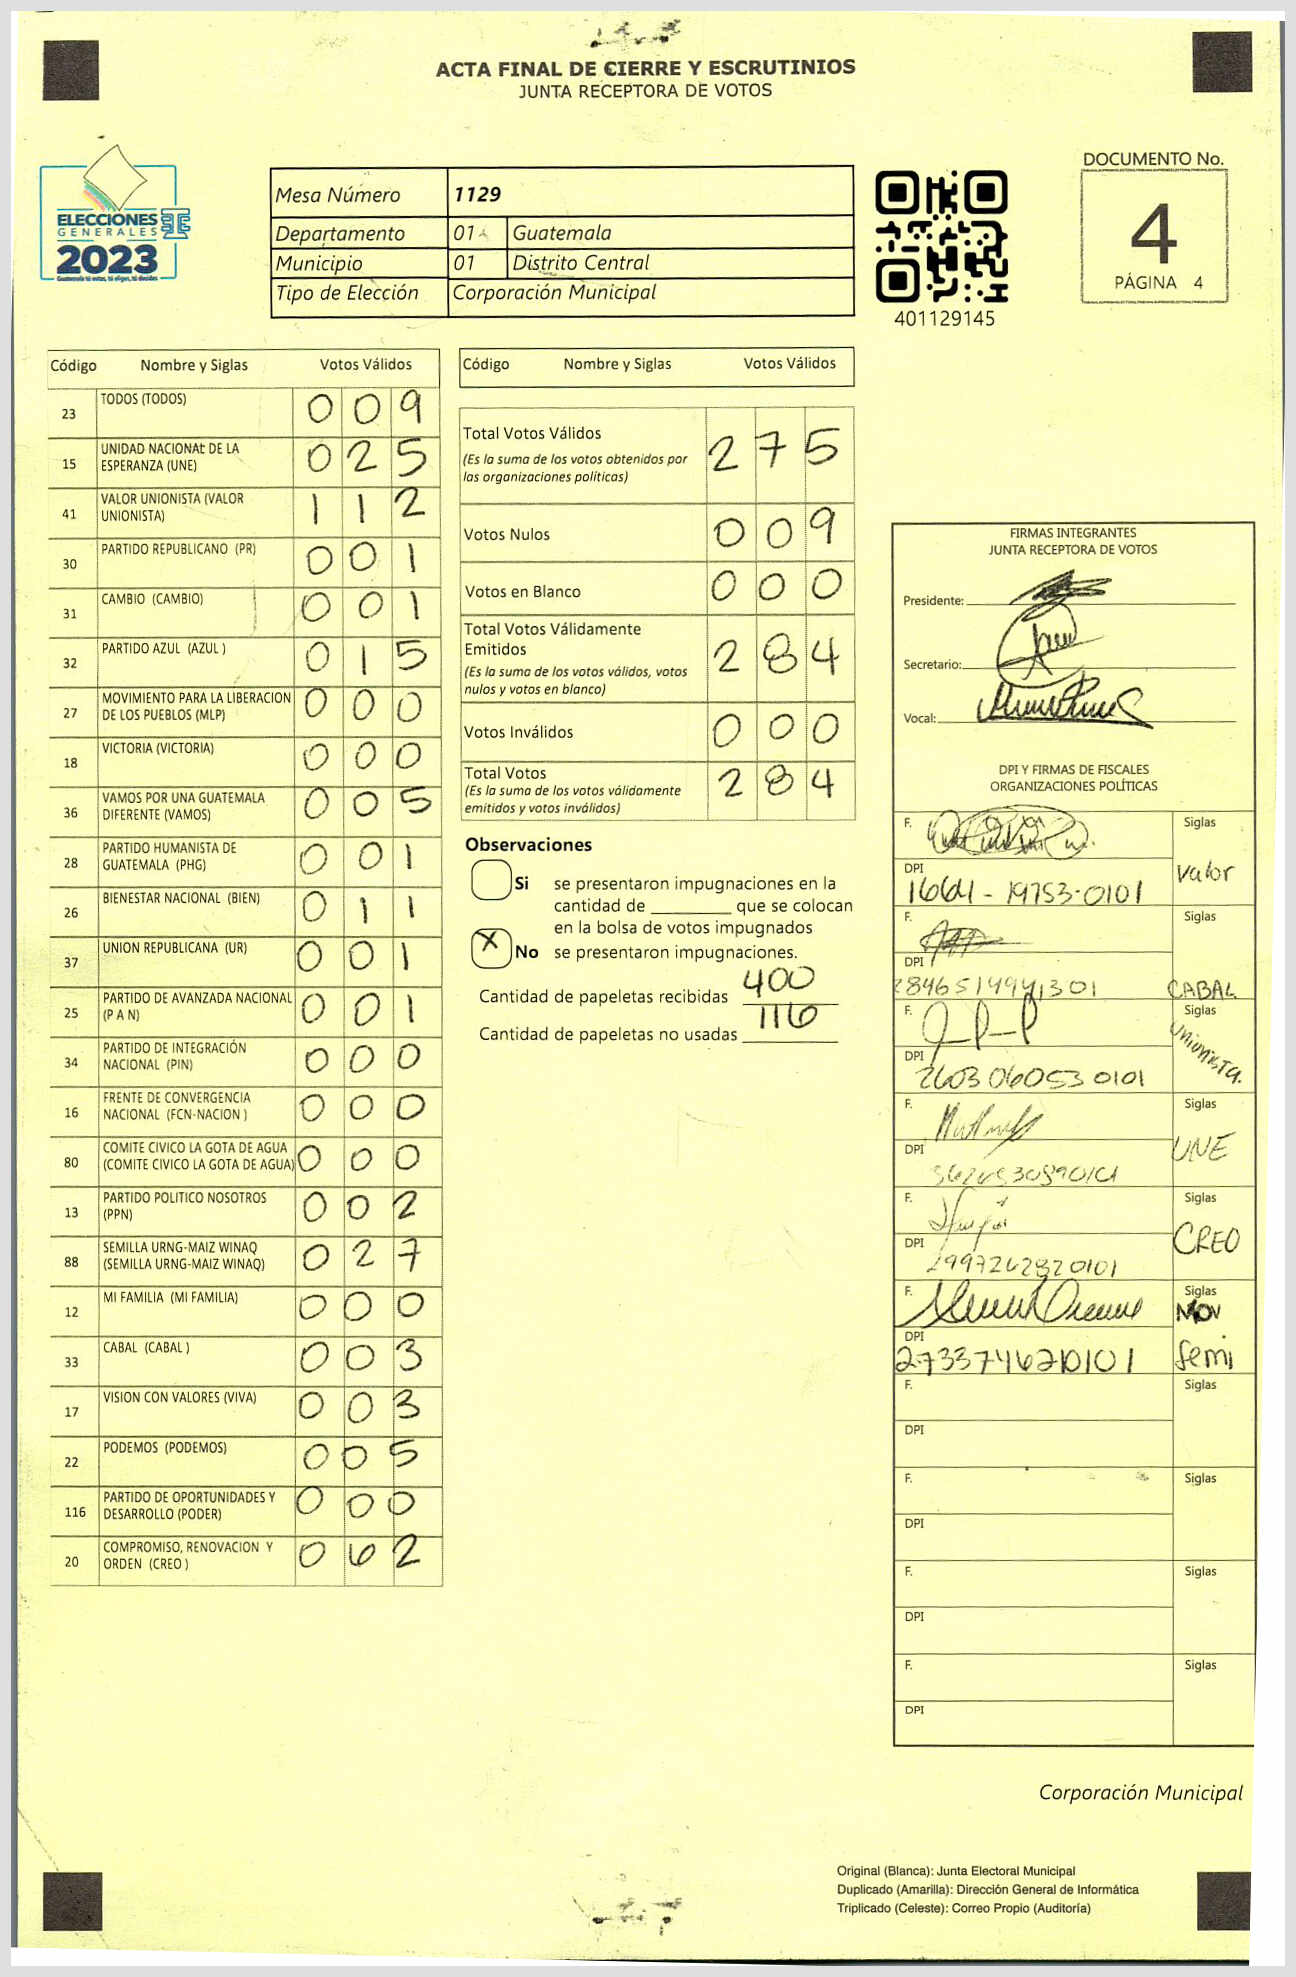 ACTA FINAL DE CIERRE Y ESCRUTINIOS
JUNTA RECEPTORA DE VOTOS
ELECCIONES
GENERALES
2023
Mesa Número 1129
Departamento 01 Guatemala
Municipio 01 Distrito Central
Tipo de Elección Corporación Municipal
401129145
DOCUMENTO No.
4
PÁGINA 4
Código Nombre y Siglas Votos Válidos
23 TODOS (TODOS) 0 0 9
15 UNIDAD NACIONAL DE LA
ESPERANZA (UNE) 0 2 5
41 VALOR UNIONISTA (VALOR
UNIONISTA) 1 1 2
30 PARTIDO REPUBLICANO (PR) 0 0 1
31 CAMBIO (CAMBIO) 0 0 1
32 PARTIDO AZUL (AZUL ) 0 1 5
27 MOVIMIENTO PARA LA LIBERACION
DE LOS PUEBLOS (MLP) 0 0 0
18 VICTORIA (VICTORIA) 0 0 0
36 VAMOS POR UNA GUATEMALA
DIFERENTE (VAMOS) 0 0 5
28 PARTIDO HUMANISTA DE
GUATEMALA (PHG) 0 0 1
26 BIENESTAR NACIONAL (BIEN) 0 1 1
37 UNION REPUBLICANA (UR) 0 0 1
25 PARTIDO DE AVANZADA NACIONAL
(P A N) 0 0 1
34 PARTIDO DE INTEGRACIÓN
NACIONAL (PIN) 0 0 0
16 FRENTE DE CONVERGENCIA
NACIONAL (FCN-NACION ) 0 0 0
80 COMITE CIVICO LA GOTA DE AGUA
(COMITE CIVICO LA GOTA DE AGUA) 0 0 0
13 PARTIDO POLITICO NOSOTROS
(PPN) 0 0 2
88 SEMILLA URNG-MAIZ WINAQ
(SEMILLA URNG-MAIZ WINAQ) 0 2 7
12 MI FAMILIA (MI FAMILIA) 0 0 0
33 CABAL (CABAL ) 0 0 3
17 VISION CON VALORES (VIVA) 0 0 3
22 PODEMOS (PODEMOS) 0 0 5
116 PARTIDO DE OPORTUNIDADES Y
DESARROLLO (PODER) 0 0 0
20 COMPROMISO, RENOVACION Y
ORDEN (CREO ) 0 6 2
Código Nombre y Siglas Votos Válidos
Total Votos Válidos 2 7 5
(Es la suma de los votos obtenidos por
las organizaciones políticas)
Votos Nulos 0 0 9
Votos en Blanco 0 0 0
Total Votos Válidamente
Emitidos 2 8 4
(Es la suma de los votos válidos, votos
nulos y votos en blanco)
Votos Inválidos 0 0 0
Total Votos 2 8 4
(Es la suma de los votos válidamente
emitidos y votos inválidos)
Observaciones
Si se presentaron impugnaciones en la
cantidad de ________ que se colocan
en la bolsa de votos impugnados
X No se presentaron impugnaciones.
Cantidad de papeletas recibidas 400
Cantidad de papeletas no usadas 116
FIRMAS INTEGRANTES
JUNTA RECEPTORA DE VOTOS
Presidente:
Secretario:
Vocal:
DPI Y FIRMAS DE FISCALES
ORGANIZACIONES POLÍTICAS
F. Siglas
DPI Valor
1664-19753-0101
F. Siglas
DPI CABAL
F. Siglas
DPI Unionista.
2603060530101
F. Siglas
DPI UNE
F. Siglas
DPI CREO
F. Siglas
MOV
DPI Semi
2733746210101
F. Siglas
DPI
F. Siglas
DPI
F. Siglas
DPI
F. Siglas
DPI
Corporación Municipal
Original (Blanca): Junta Electoral Municipal
Duplicado (Amarilla): Dirección General de Informática
Triplicado (Celeste): Correo Propio (Auditoría)